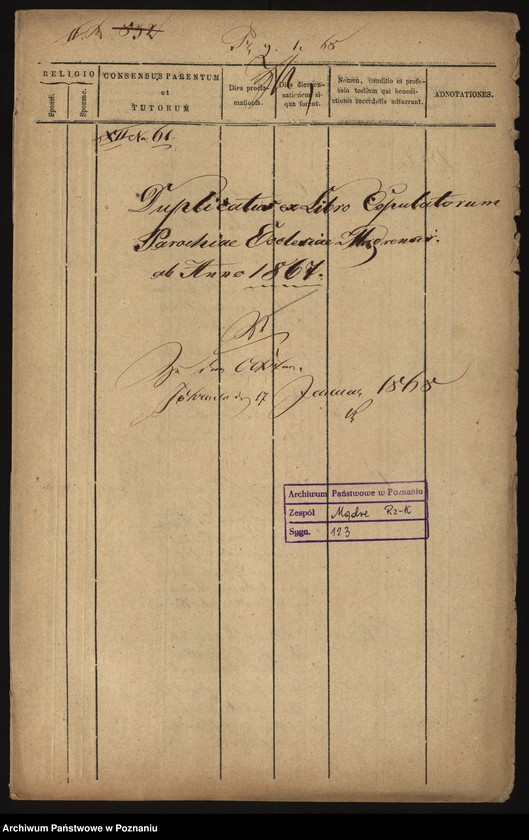 832
Pr. 9. 1. 68
RELIGIO
Sponsi.
Sponsae.
CONSENSUS PARENTUM
et
TUTORUM
Dies procla-
mationis.
Dies dispen-
sationis si-
qua forent.
Nomen, conditio et profes-
sio testium qui benedi-
ctionis sacerdotis adfuerunt.
ADNOTATIONES.
XII No 61.
Duplicatus ex Libro Copulatorum
Parochiae Ecclesiae Mądrensis.
ab Anno 1867.
Zu den Akten.
17 Januar 1868
Archiwum Państwowe w Poznaniu
Zespół Mądre Rz-K
Sygn. 123
Archiwum Państwowe w Poznaniu